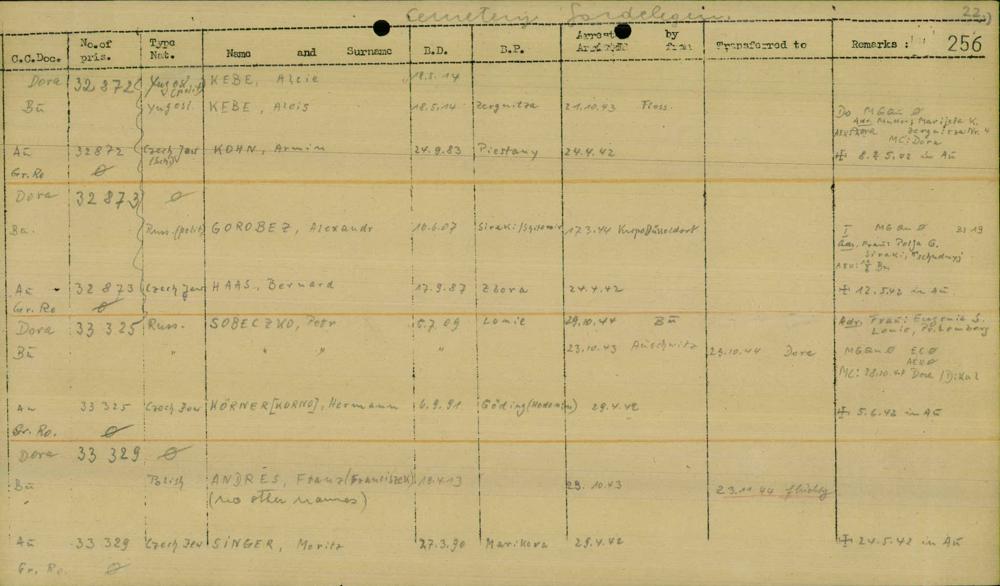 Cemetery Gardelegen. 22.)
C.C.Doc. No. of pris. Type Nat. Name and Surname B.D. B.P. Arrest Arrived by from Transferred to Remarks : 256
Dora 32 872 Yugosl. (polit) KEBE, Alcie 18.5.14
Bu Yugosl. KEBE, Alois 18.5.14 Zergnitza 21.10.43 Floss. Do MGBu Ø
Adr. Mutter Marijeta K.
MC: Dora
Au 32872 Czech Jew (Sch) KOHN, Armin 24.9.83 Piestany 24.4.42 8.5.42 in Au
Gr. Ro Ø
Dora 32 873 Ø
Bu. Russ. (polit) GOROBEZ, Alexandr 10.6.07 17.3.44 I MGBu Ø
Adr. Frau: Polja G.
Siraki,
Au 32 873 Czech Jew HAAS, Bernard 17.9.87 Zbora 24.4.42 12.5.42 in Au.
Gr. Ro Ø
Dora 33 325 Russ. SOBECZKO, Petr 5.7.09 Lomie 29.10.44 Bu Adr. Frau: Eugenie S.
Lomie,
Bu " " " " 23.10.43 Auschwitz 29.10.44 Dora MGBu Ø ECØ
MC: 28.10.44 Dora
Au 33 325 Czech Jew KÖRNER [KORNO], Hermann 6.9.91 Göding (Hodonin) 29.4.42 5.6.42 in Au
Gr. Ro. Ø
Dora 33 329 Ø
Bu Polish ANDRÉS, Franz (Franciszek) 18.4.13 29.10.43 23.11.44 flüchtig
" (no other names)
Au 33 329 Czech Jew SINGER, Moritz 27.3.90 Marikova 29.4.42 24.5.42 in Au
Gr. Ro. Ø